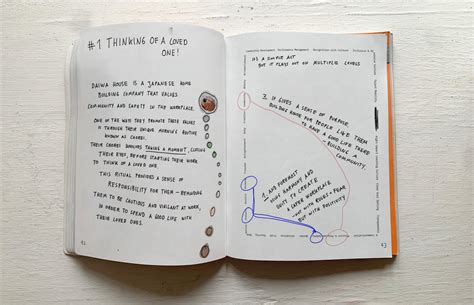 #1 THINKING OF A LOVED
ONE!
DAIWA HOUSE IS A JAPANESE HOME
BUILDING COMPANY THAT VALUES
COMMUNITY AND SAFETY IN THE WORKPLACE.
ONE OF THE WAYS THEY PROMOTE THESE VALUES
IS THROUGH THEIR UNIQUE MORNING ROUTINE
KNOWN AS CHOREI.
THEIR CHOREIS INVOLVES TAKING A MOMENT, CLOSING
THEIR EYES, BEFORE STARTING THEIR WORK
TO THINK OF A LOVED ONE.
THIS RITUAL PROVIDES A SENSE OF
RESPONSIBILITY FOR THEM – REMINDING
THEM TO BE CAUTIOUS AND VIGILANT AT WORK,
IN ORDER TO SPEND A GOOD LIFE WITH
THEIR LOVED ONES.
Leadership Development Performance Management
IT'S A SIMPLE ACT
BUT IT PLAYS OUT ON MULTIPLE LEVELS
2. IT GIVES A SENSE OF PURPOSE
BUILDING HOME FOR PEOPLE LIKE THEM
TO HAVE A GOOD LIFE THERE
– BUILDING A
COMMUNITY.
1. AND FOREMOST
USING HARMONY AND
UNITY TO CREATE
A SAFER WORKPLACE
– NOT WITH RULES + FEAR
BUT WITH POSITIVITY